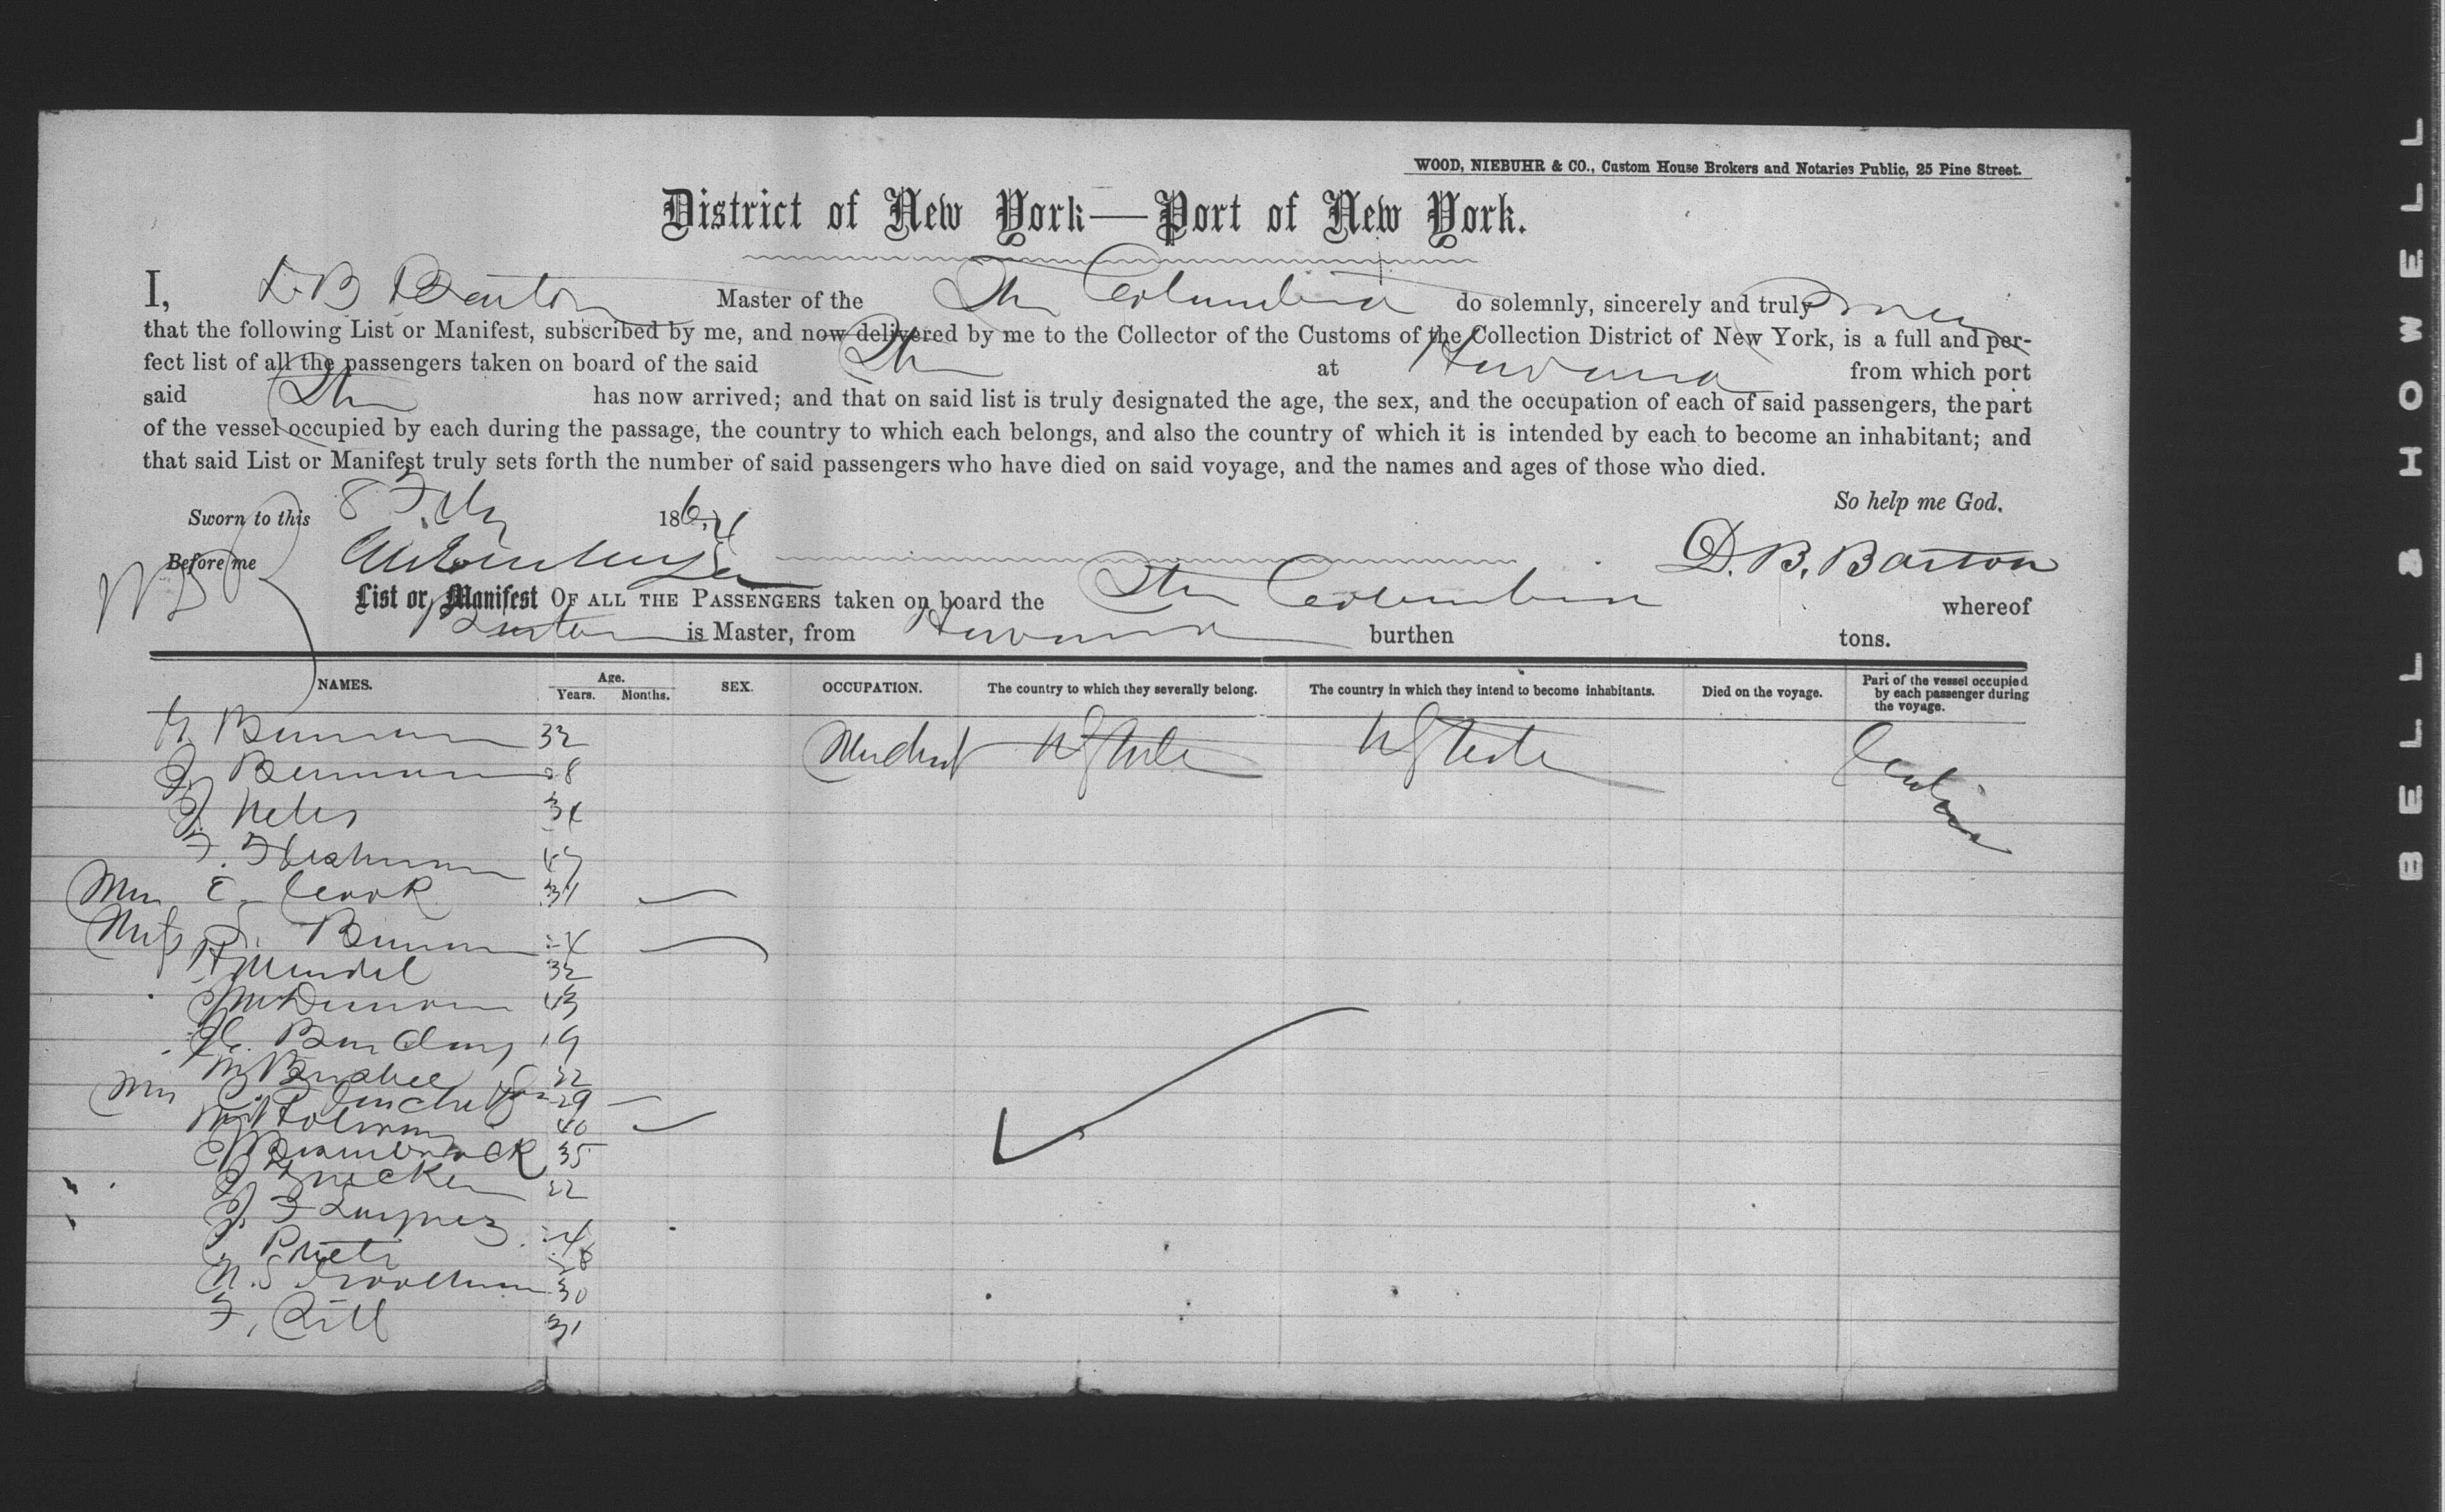 WOOD, NIEBUHR & CO., Custom House Brokers and Notaries Public, 25 Pine Street.
District of New York—Port of New York.
I, D B Barton Master of the Str Columbia do solemnly, sincerely and truly swear
that the following List or Manifest, subscribed by me, and now delivered by me to the Collector of the Customs of the Collection District of New York, is a full and per-
fect list of all the passengers taken on board of the said Str at Havana from which port
said Str has now arrived; and that on said list is truly designated the age, the sex, and the occupation of each of said passengers, the part
of the vessel occupied by each during the passage, the country to which each belongs, and also the country of which it is intended by each to become an inhabitant; and
that said List or Manifest truly sets forth the number of said passengers who have died on said voyage, and the names and ages of those who died.
So help me God.
Sworn to this 8 Feby 1864
Before me D. B. Barton
List or Manifest OF ALL THE PASSENGERS taken on board the Str Columbia whereof
Barton is Master, from Havana burthen tons.
NAMES. Age. Years. Months. SEX. OCCUPATION. The country to which they severally belong. The country in which they intend to become inhabitants. Died on the voyage. Part of the vessel occupied by each passenger during the voyage.
32 Merchant U States U States Cabin
28
34
F. 47
Mrs E. Cook 31
Miss 24
H Mendel 32
43
19
22
Mrs 29
40
35
J 22
J. F 24
J. Prieto 28
N. S 30
F. Gill 31
BELL & HOWELL